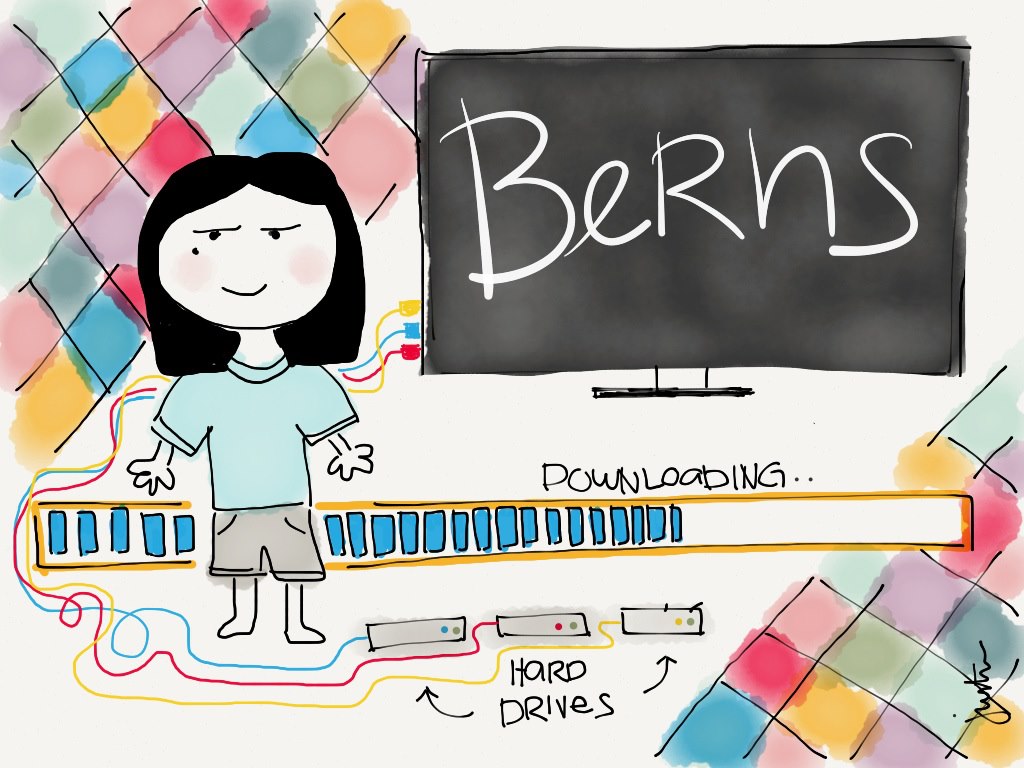 BeRnS
DOWNLOADING..
HARD
DRIVES